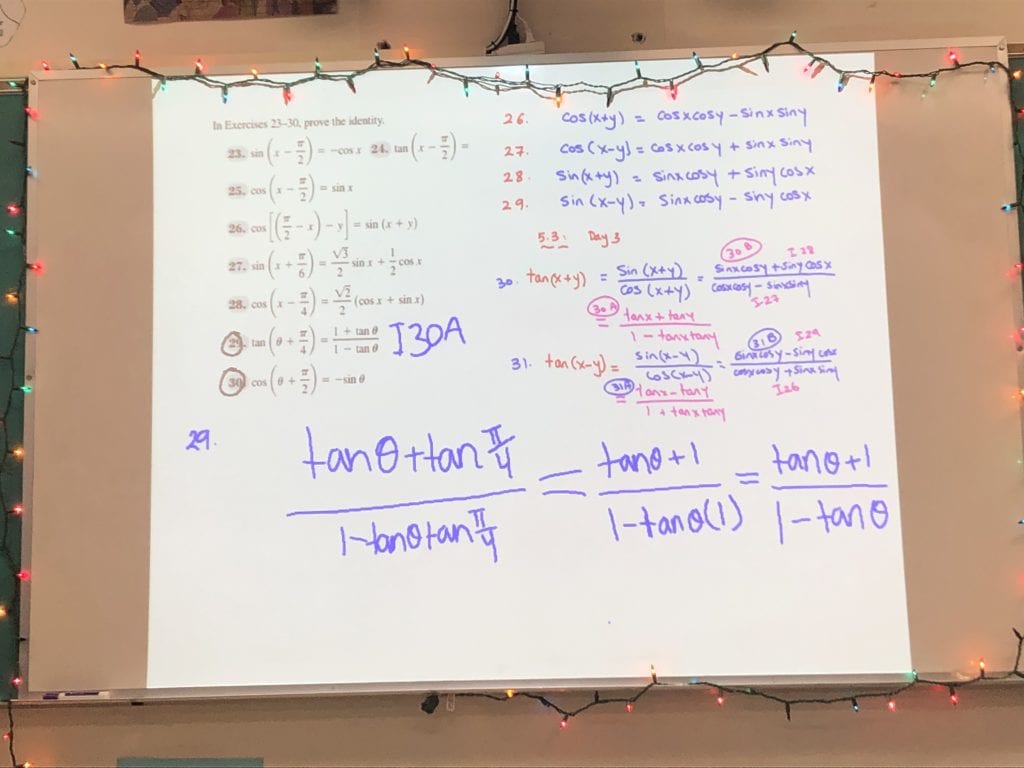 In Exercises 23–30, prove the identity.
23. sin(x − π/2) = −cos x 24. tan(x − π/2) =
25. cos(x − π/2) = sin x
26. cos[(π/2 − x) − y] = sin (x + y)
27. sin(x + π/6) = √3/2 sin x + 1/2 cos x
28. cos(x − π/4) = √2/2 (cos x + sin x)
29. tan(θ + π/4) = (1 + tan θ)/(1 − tan θ) I30A
30. cos(θ + π/2) = −sin θ
26. cos(x+y) = cosxcosy − sinxsiny
27. cos(x−y) = cosxcosy + sinxsiny
28. sin(x+y) = sinxcosy + sinycosx
29. sin(x−y) = sinxcosy − sinycosx
5.3: Day 3
30. tan(x+y) = sin(x+y)/cos(x+y) = 30B (sinxcosy + sinycosx)/(cosxcosy − sinxsiny) I28 I27
30A = (tanx + tany)/(1 − tanxtany)
31. tan(x−y) = sin(x−y)/cos(x−y) = 31B (sinxcosy − sinycosx)/(cosxcosy + sinxsiny) I29 I26
31A = (tanx − tany)/(1 + tanxtany)
29. (tanθ + tan π/4)/(1 − tanθtan π/4) = (tanθ + 1)/(1 − tanθ(1)) = (tanθ + 1)/(1 − tanθ)